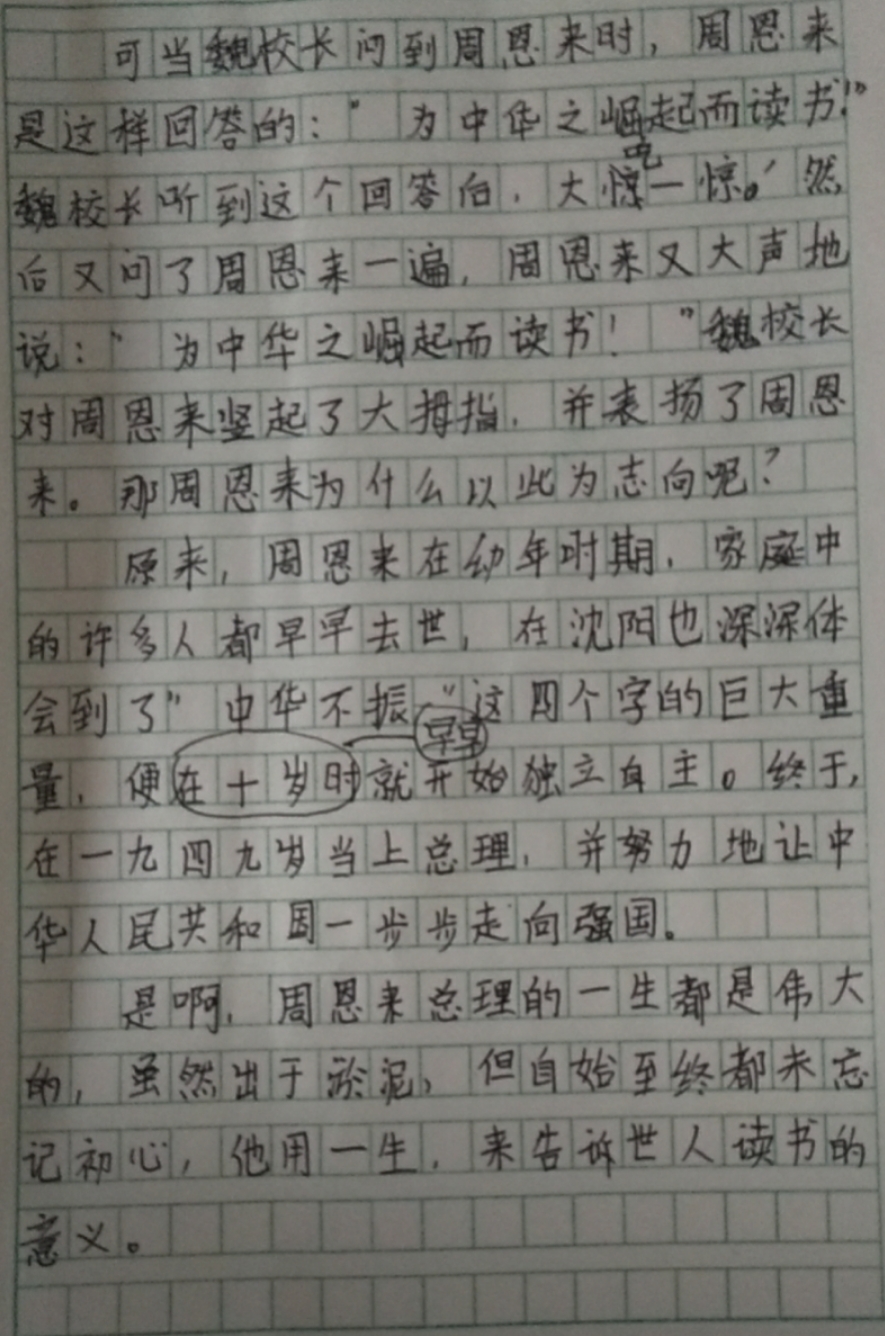 可当魏校长问到周恩来时，周恩来
是这样回答的：“为中华之崛起而读书！”
吃
魏校长听到这个回答后，大惊一惊。然
后又问了周恩来一遍，周恩来又大声地
说：“为中华之崛起而读书！”魏校长
对周恩来竖起了大拇指，并表扬了周恩
来。那周恩来为什么以此为志向呢？
原来，周恩来在幼年时期，家庭中
的许多人都早早去世，在沈阳也深深体
会到了“中华不振”这四个字的巨大重
早早
量，便在十岁时就开始独立自主。终于，
在一九四九岁当上总理，并努力地让中
华人民共和国一步步走向强国。
是啊，周恩来总理的一生都是伟大
的，虽然出于淤泥，但自始至终都未忘
记初心，他用一生，来告诉世人读书的
意义。